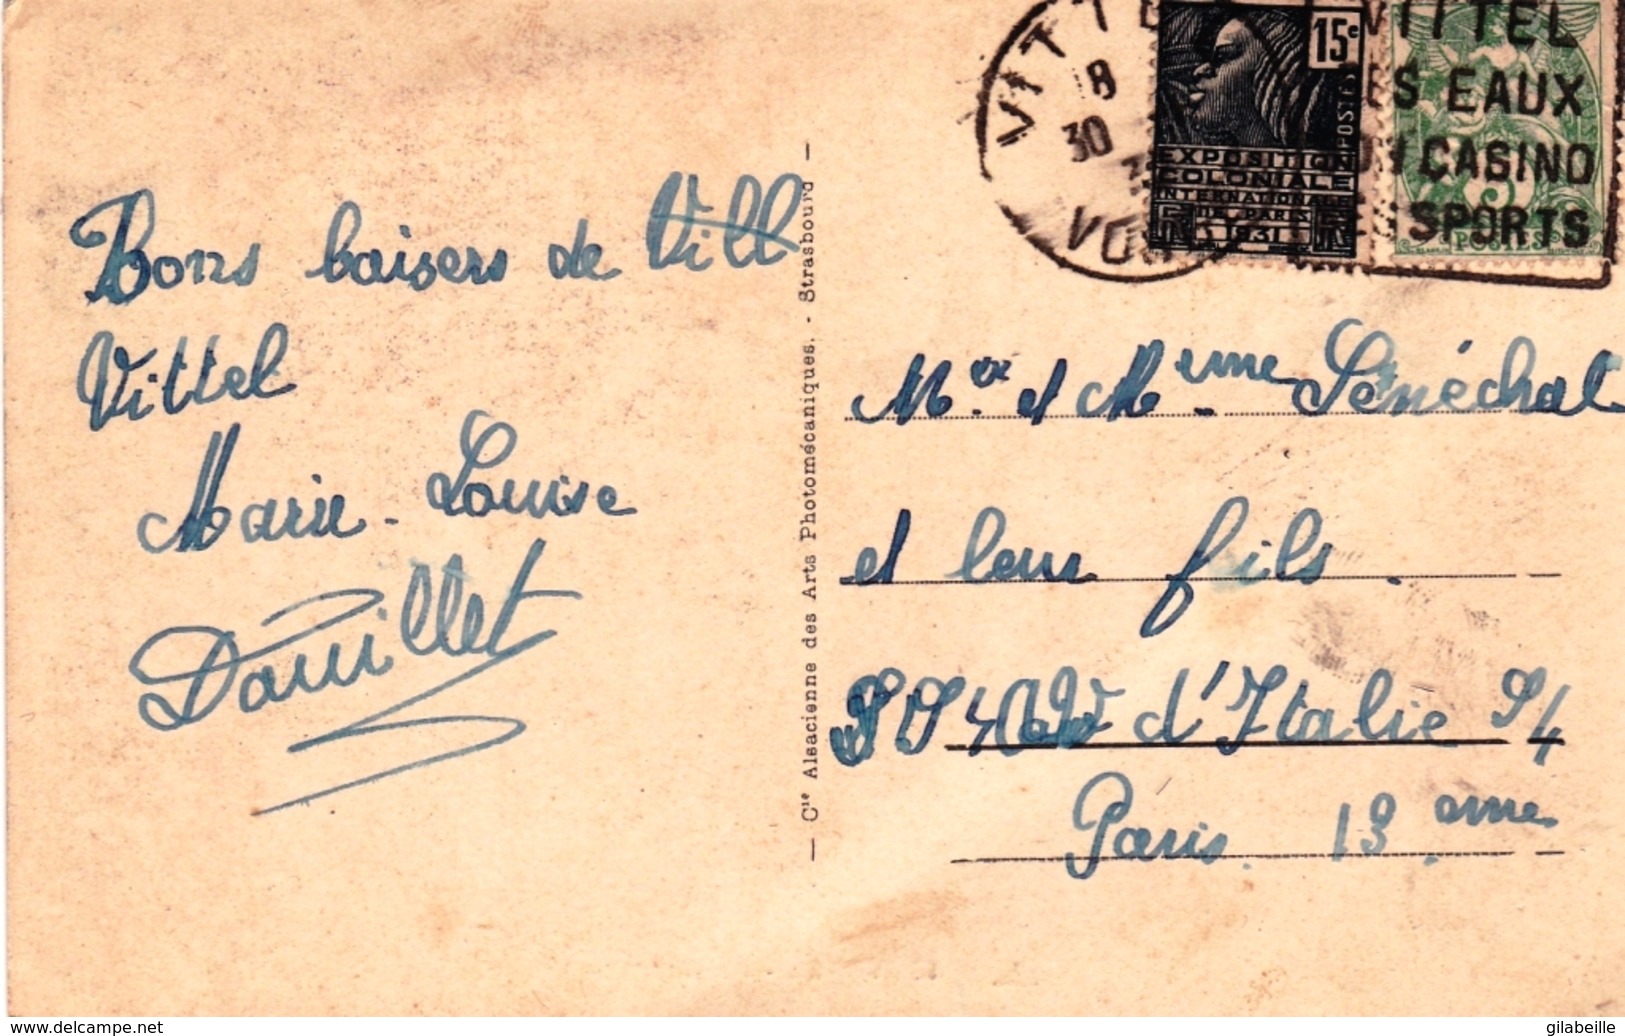 Bons baisers de Vill
Vittel
Marie-Louise
Dauillet
— Cie Alsacienne des Arts Photomécaniques. - Strasbourg —
VITTEL
18
30
15c
POSTES
EXPOSITION
COLONIALE
INTERNATIONALE
DE PARIS
1931
VITTEL
EAUX
CASINO
SPORTS
5
POSTES
Mr et Mme Sénéchal
et leur fils.
d'Italie
Paris. 13ème
delcampe.net
gilabeille